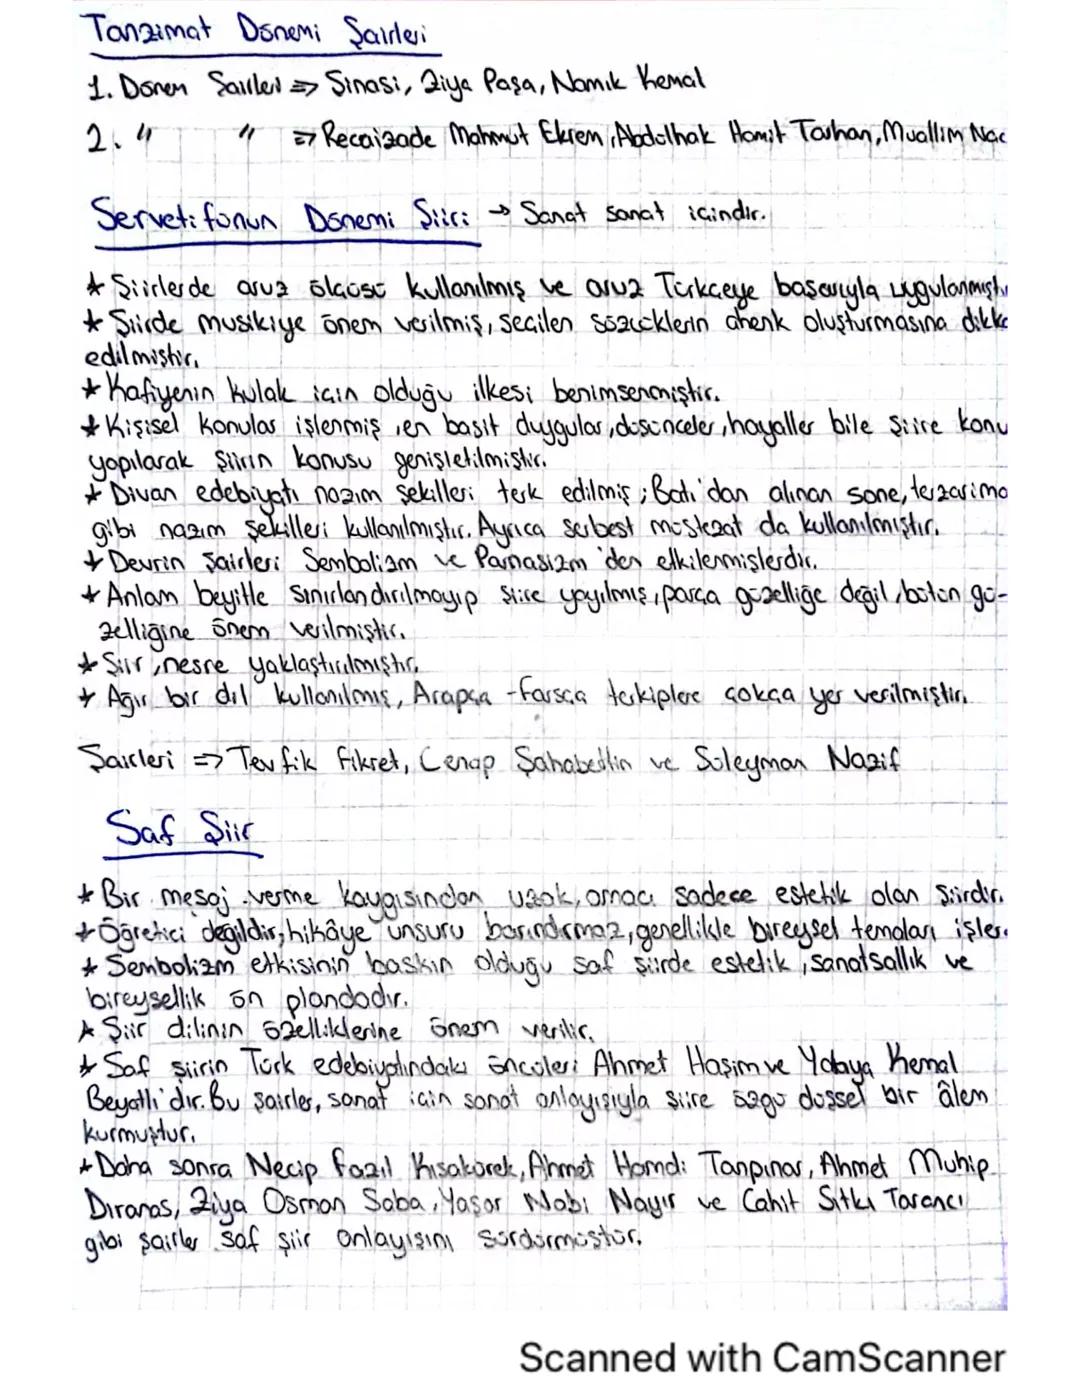 Tanzimat Dönemi Şairleri
1. Dönem Şairleri => Şinasi, Ziya Paşa, Namık Kemal
2. " " => Recaizade Mahmut Ekrem, Abdülhak Hamit Tarhan, Muallim Nac
Servetifünun Dönemi Şiiri → Sanat sanat içindir.
* Şiirlerde aruz ölçüsü kullanılmış ve aruz Türkçeye başarıyla uygulanmıştı
* Şiirde musikiye önem verilmiş, seçilen sözcüklerin ahenk oluşturmasına dikka
edilmiştir.
* Kafiyenin kulak için olduğu ilkesi benimsenmiştir.
* Kişisel konular işlenmiş, en basit duygular, düşünceler, hayaller bile şiire konu
yapılarak şiirin konusu genişletilmiştir.
* Divan edebiyatı nazım şekilleri terk edilmiş; Batı'dan alınan sone, terzarima
gibi nazım şekilleri kullanılmıştır. Ayrıca serbest müstezat da kullanılmıştır.
* Devrin şairleri Sembolizm ve Parnasizm'den etkilenmişlerdir.
* Anlam beyitle sınırlandırılmayıp şiire yayılmış, parça güzelliğe değil, bütün gü-
zelliğine önem verilmiştir.
* Şiir, nesre yaklaştırılmıştır.
* Ağır bir dil kullanılmış, Arapça-Farsça terkiplere çokça yer verilmiştir.
Şairleri => Tevfik Fikret, Cenap Şahabettin ve Süleyman Nazif
Saf Şiir
* Bir mesaj verme kaygısından uzak, amacı sadece estetik olan şiirdir.
* Öğretici değildir, hikâye unsuru barındırmaz, genellikle bireysel temaları işler.
* Sembolizm etkisinin baskın olduğu saf şiirde estetik, sanatsallık ve
bireysellik ön plandadır.
* Şiir dilinin özelliklerine önem verilir.
* Saf şiirin Türk edebiyatındaki öncüleri Ahmet Haşim ve Yahya Kemal
Beyatlı'dır. Bu şairler, sanat için sanat anlayışıyla şiire özgü düşsel bir âlem
kurmuştur.
* Daha sonra Necip Fazıl Kısakürek, Ahmet Hamdi Tanpınar, Ahmet Muhip
Dıranas, Ziya Osman Saba, Yaşar Nabi Nayır ve Cahit Sıtkı Tarancı
gibi şairler saf şiir anlayışını sürdürmüştür.
Scanned with CamScanner